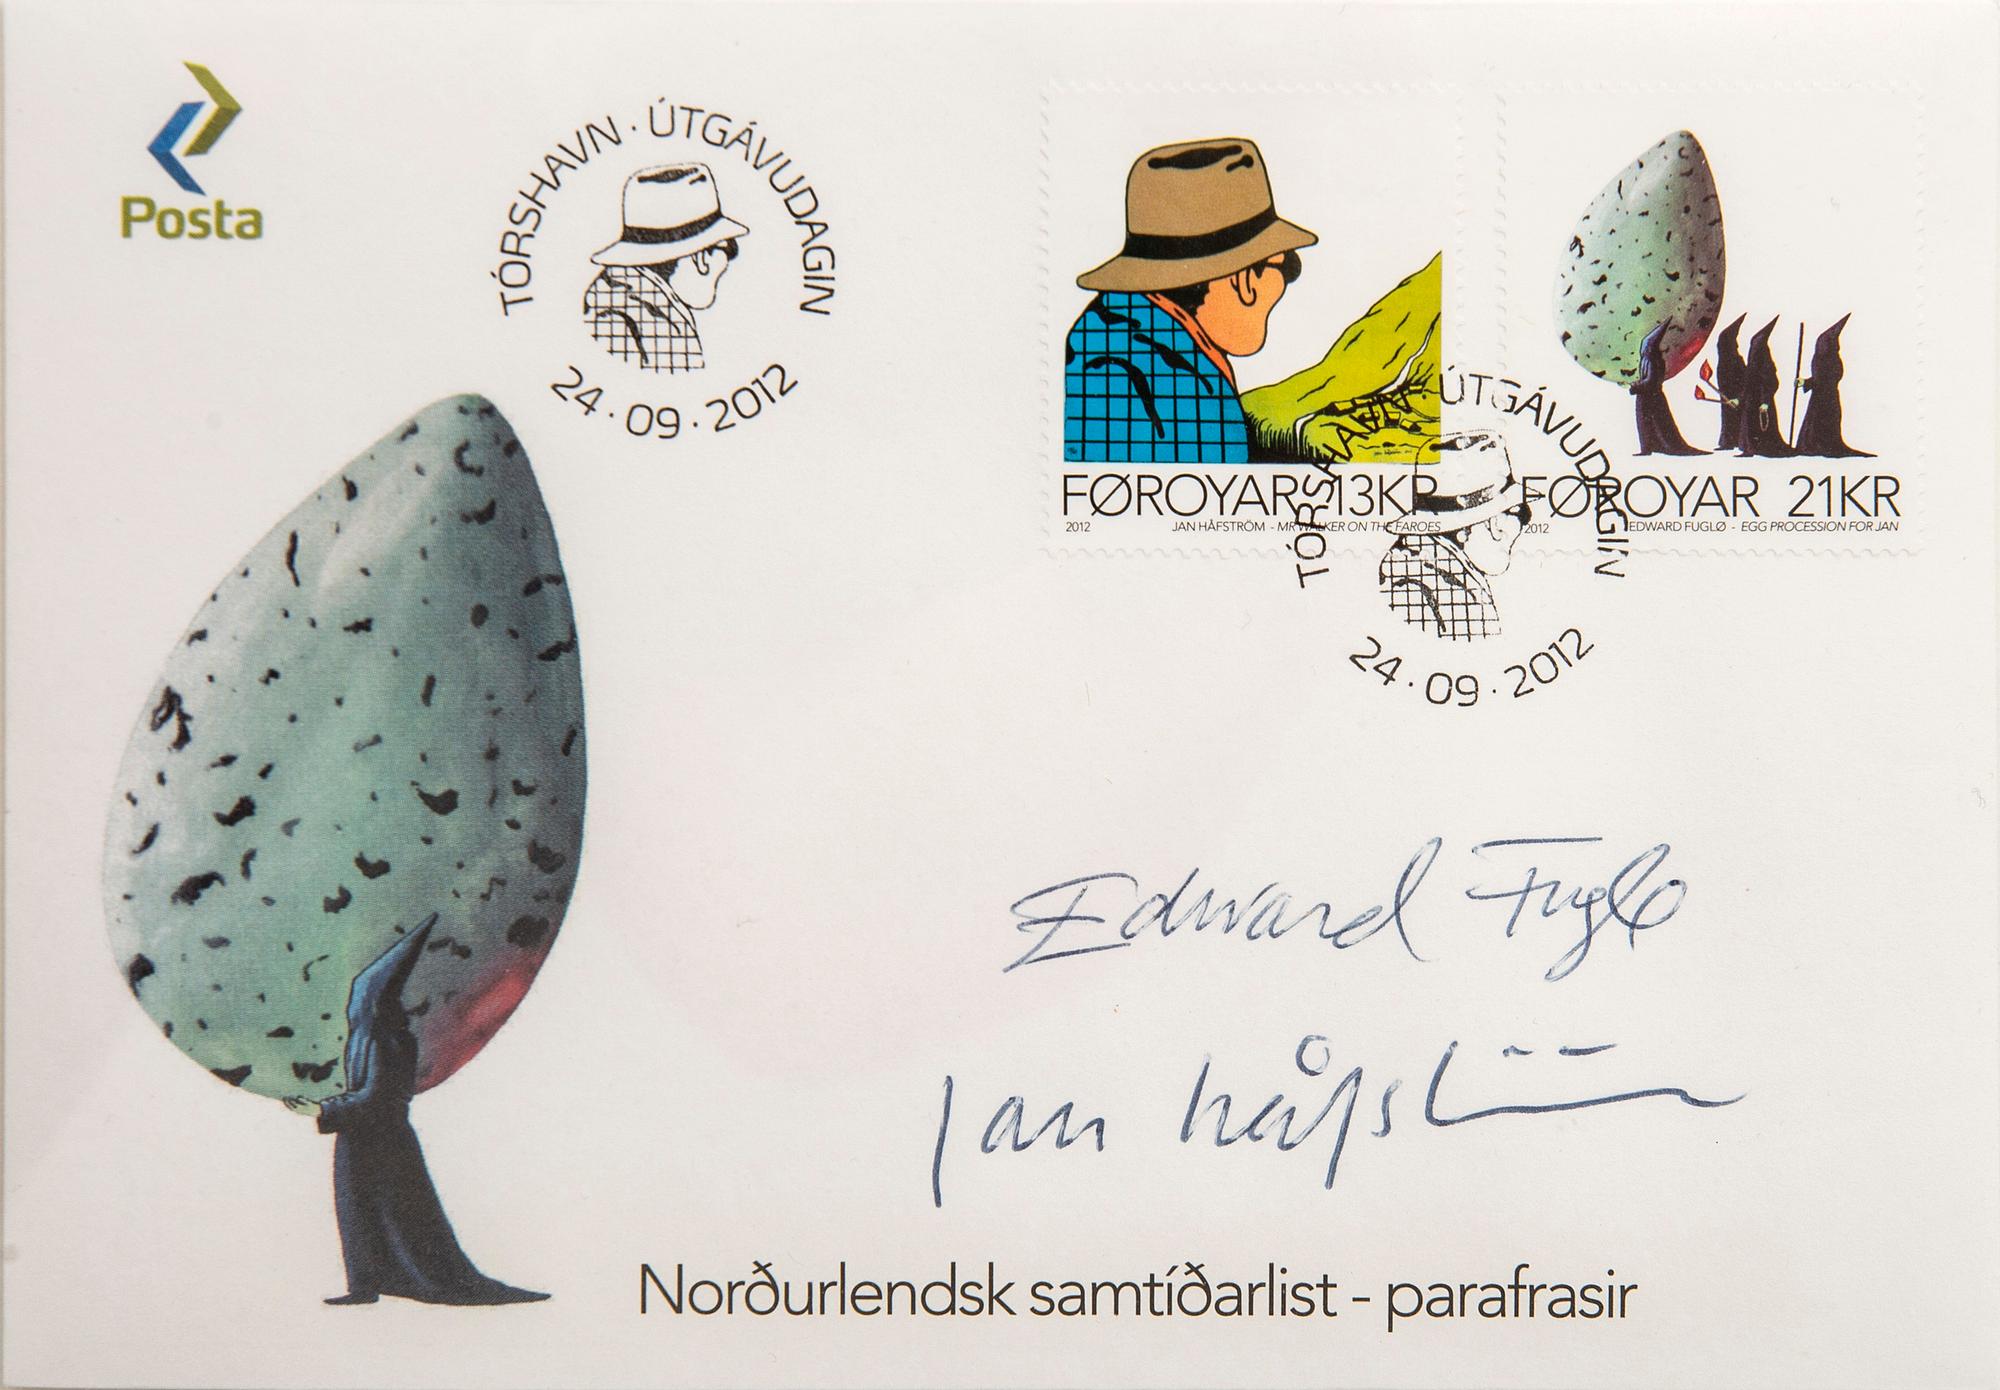 Posta
TÓRSHAVN · ÚTGÁVUDAGIN
24 · 09 · 2012
FØROYAR 13KR
2012 JAN HÅFSTRÖM - MR WALKER ON THE FAROES
FØROYAR 21KR
2012 EDWARD FUGLØ - EGG PROCESSION FOR JAN
TÓRSHAVN · ÚTGÁVUDAGIN
24 · 09 · 2012
Edward Fuglø
Jan Håfström
Norðurlendsk samtíðarlist - parafrasir